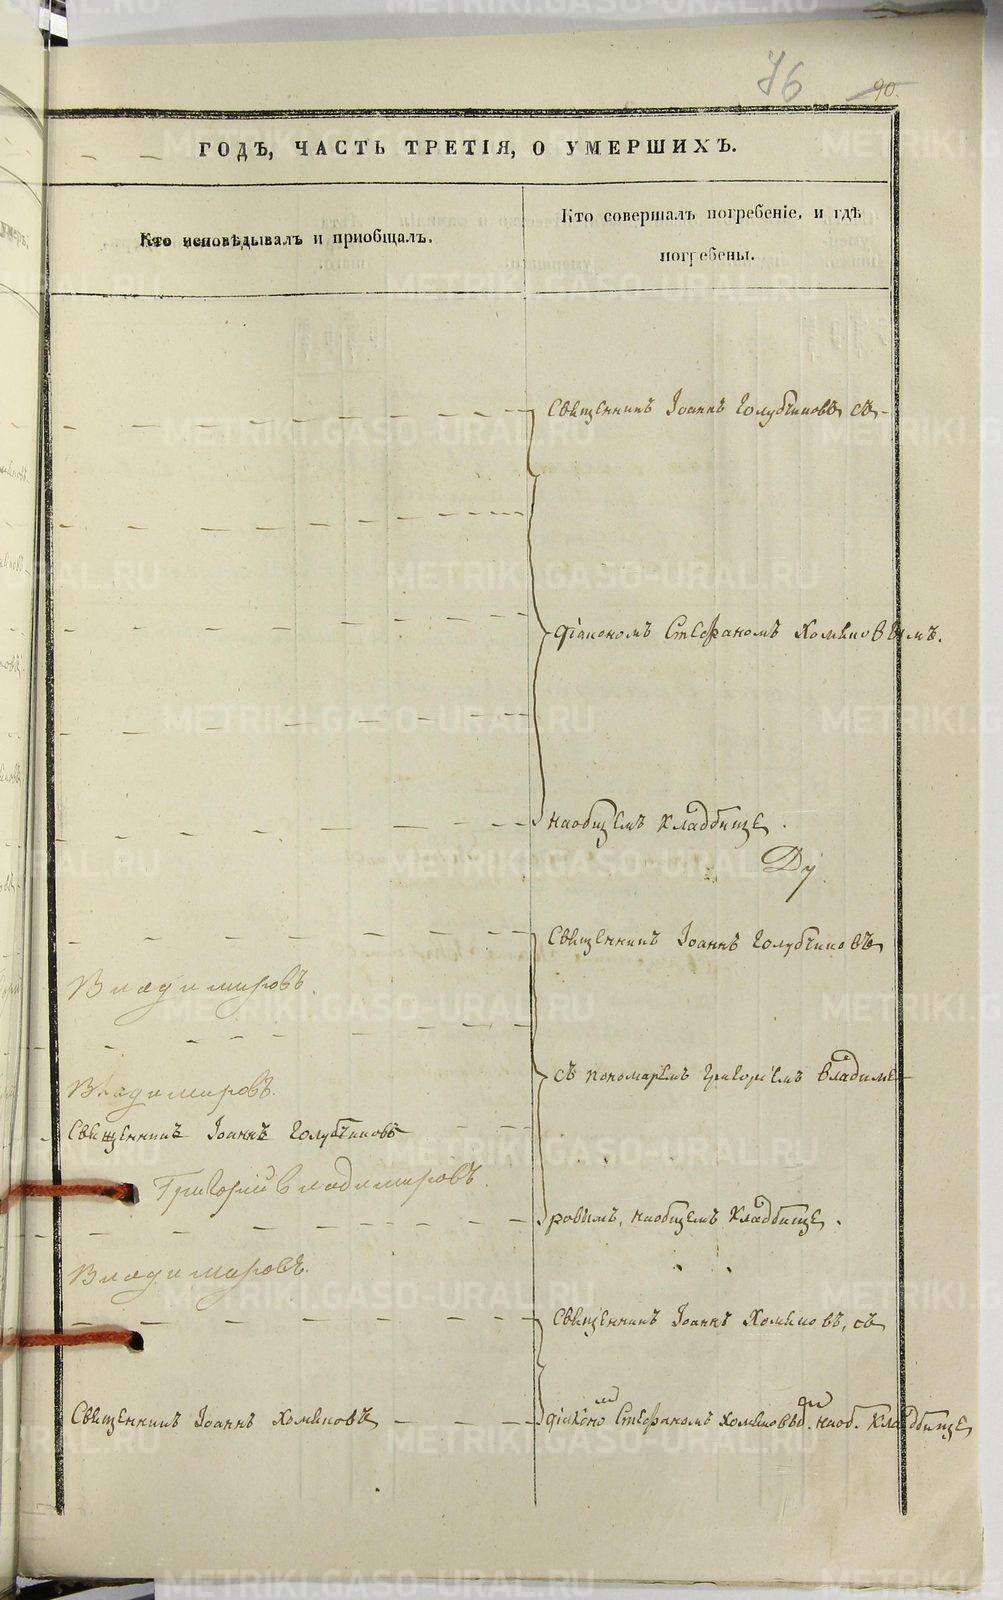 76 90.
ГОДЪ, ЧАСТЬ ТРЕТІЯ, О УМЕРШИХЪ.
Кто исповѣдывалъ и пріобщалъ.
Кто совершалъ погребеніе, и гдѣ
погребены.
Священникъ Іоаннъ Голубчиковъ съ
діакономъ Стефаномъ Хомяковымъ.
наобщемъ кладбище.
Священникъ Іоаннъ Голубчиковъ
Владимировъ.
съ пономаремъ Григоріемъ Владими-
Владимировъ.
Священникъ Іоаннъ Голубчиковъ
Григорий Владимировъ.
ровымъ, наобщемъ кладбище.
Владимировъ.
Священникъ Іоаннъ Хомяковъ, съ
Священникъ Іоаннъ Хомяковъ
Стефаномъ наоб. кладбище
METRIKI.GASO-URAL.RU